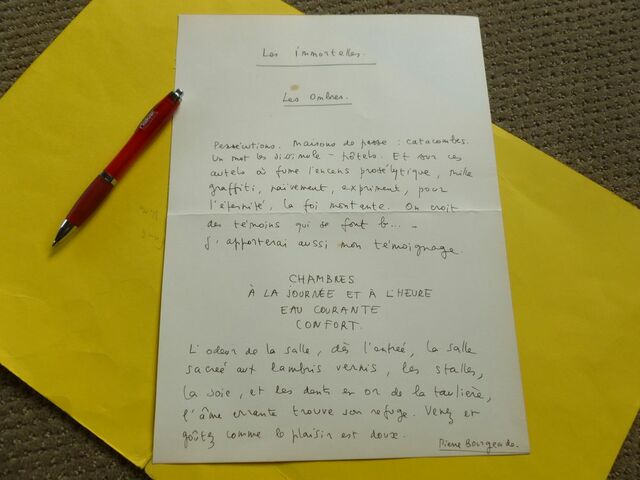 Les immortelles.
Les Ombres.
Persécutions. Maisons de passe : catacombes.
Un mot les dissimule – hôtels. Et sur ces
autels où fume l'encens prosélytique, mille
graffiti, naïvement, expriment, pour
l'éternité, la foi montante. On croit
des témoins qui se font b... –
J'apporterai aussi mon témoignage.
CHAMBRES
À LA JOURNÉE ET À L'HEURE
EAU COURANTE
CONFORT.
L'odeur de la salle, dès l'entrée, la salle
sacrée aux lambris vernis, les stalles,
la soie, et les dents en or de la taulière,
l'âme errante trouve son refuge. Venez et
goûtez comme le plaisir est doux.
Pierre Bourgeade.